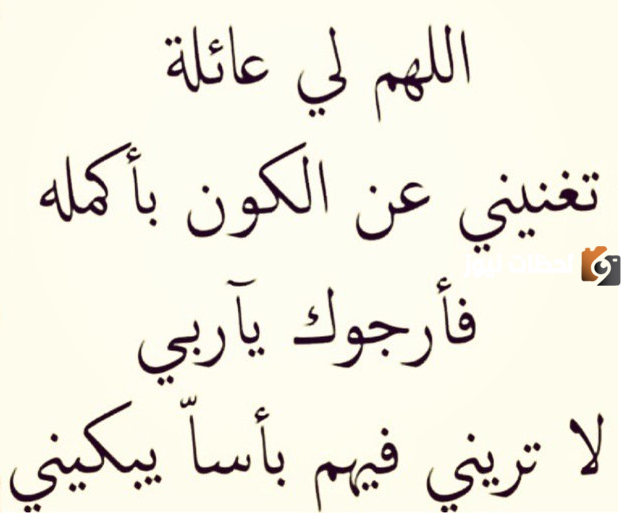 اللهم لي عائلة
تغنيني عن الكون بأكمله
لحظات نيوز
فأرجوك يآربي
لا تريني فيهم بأساّ يبكيني